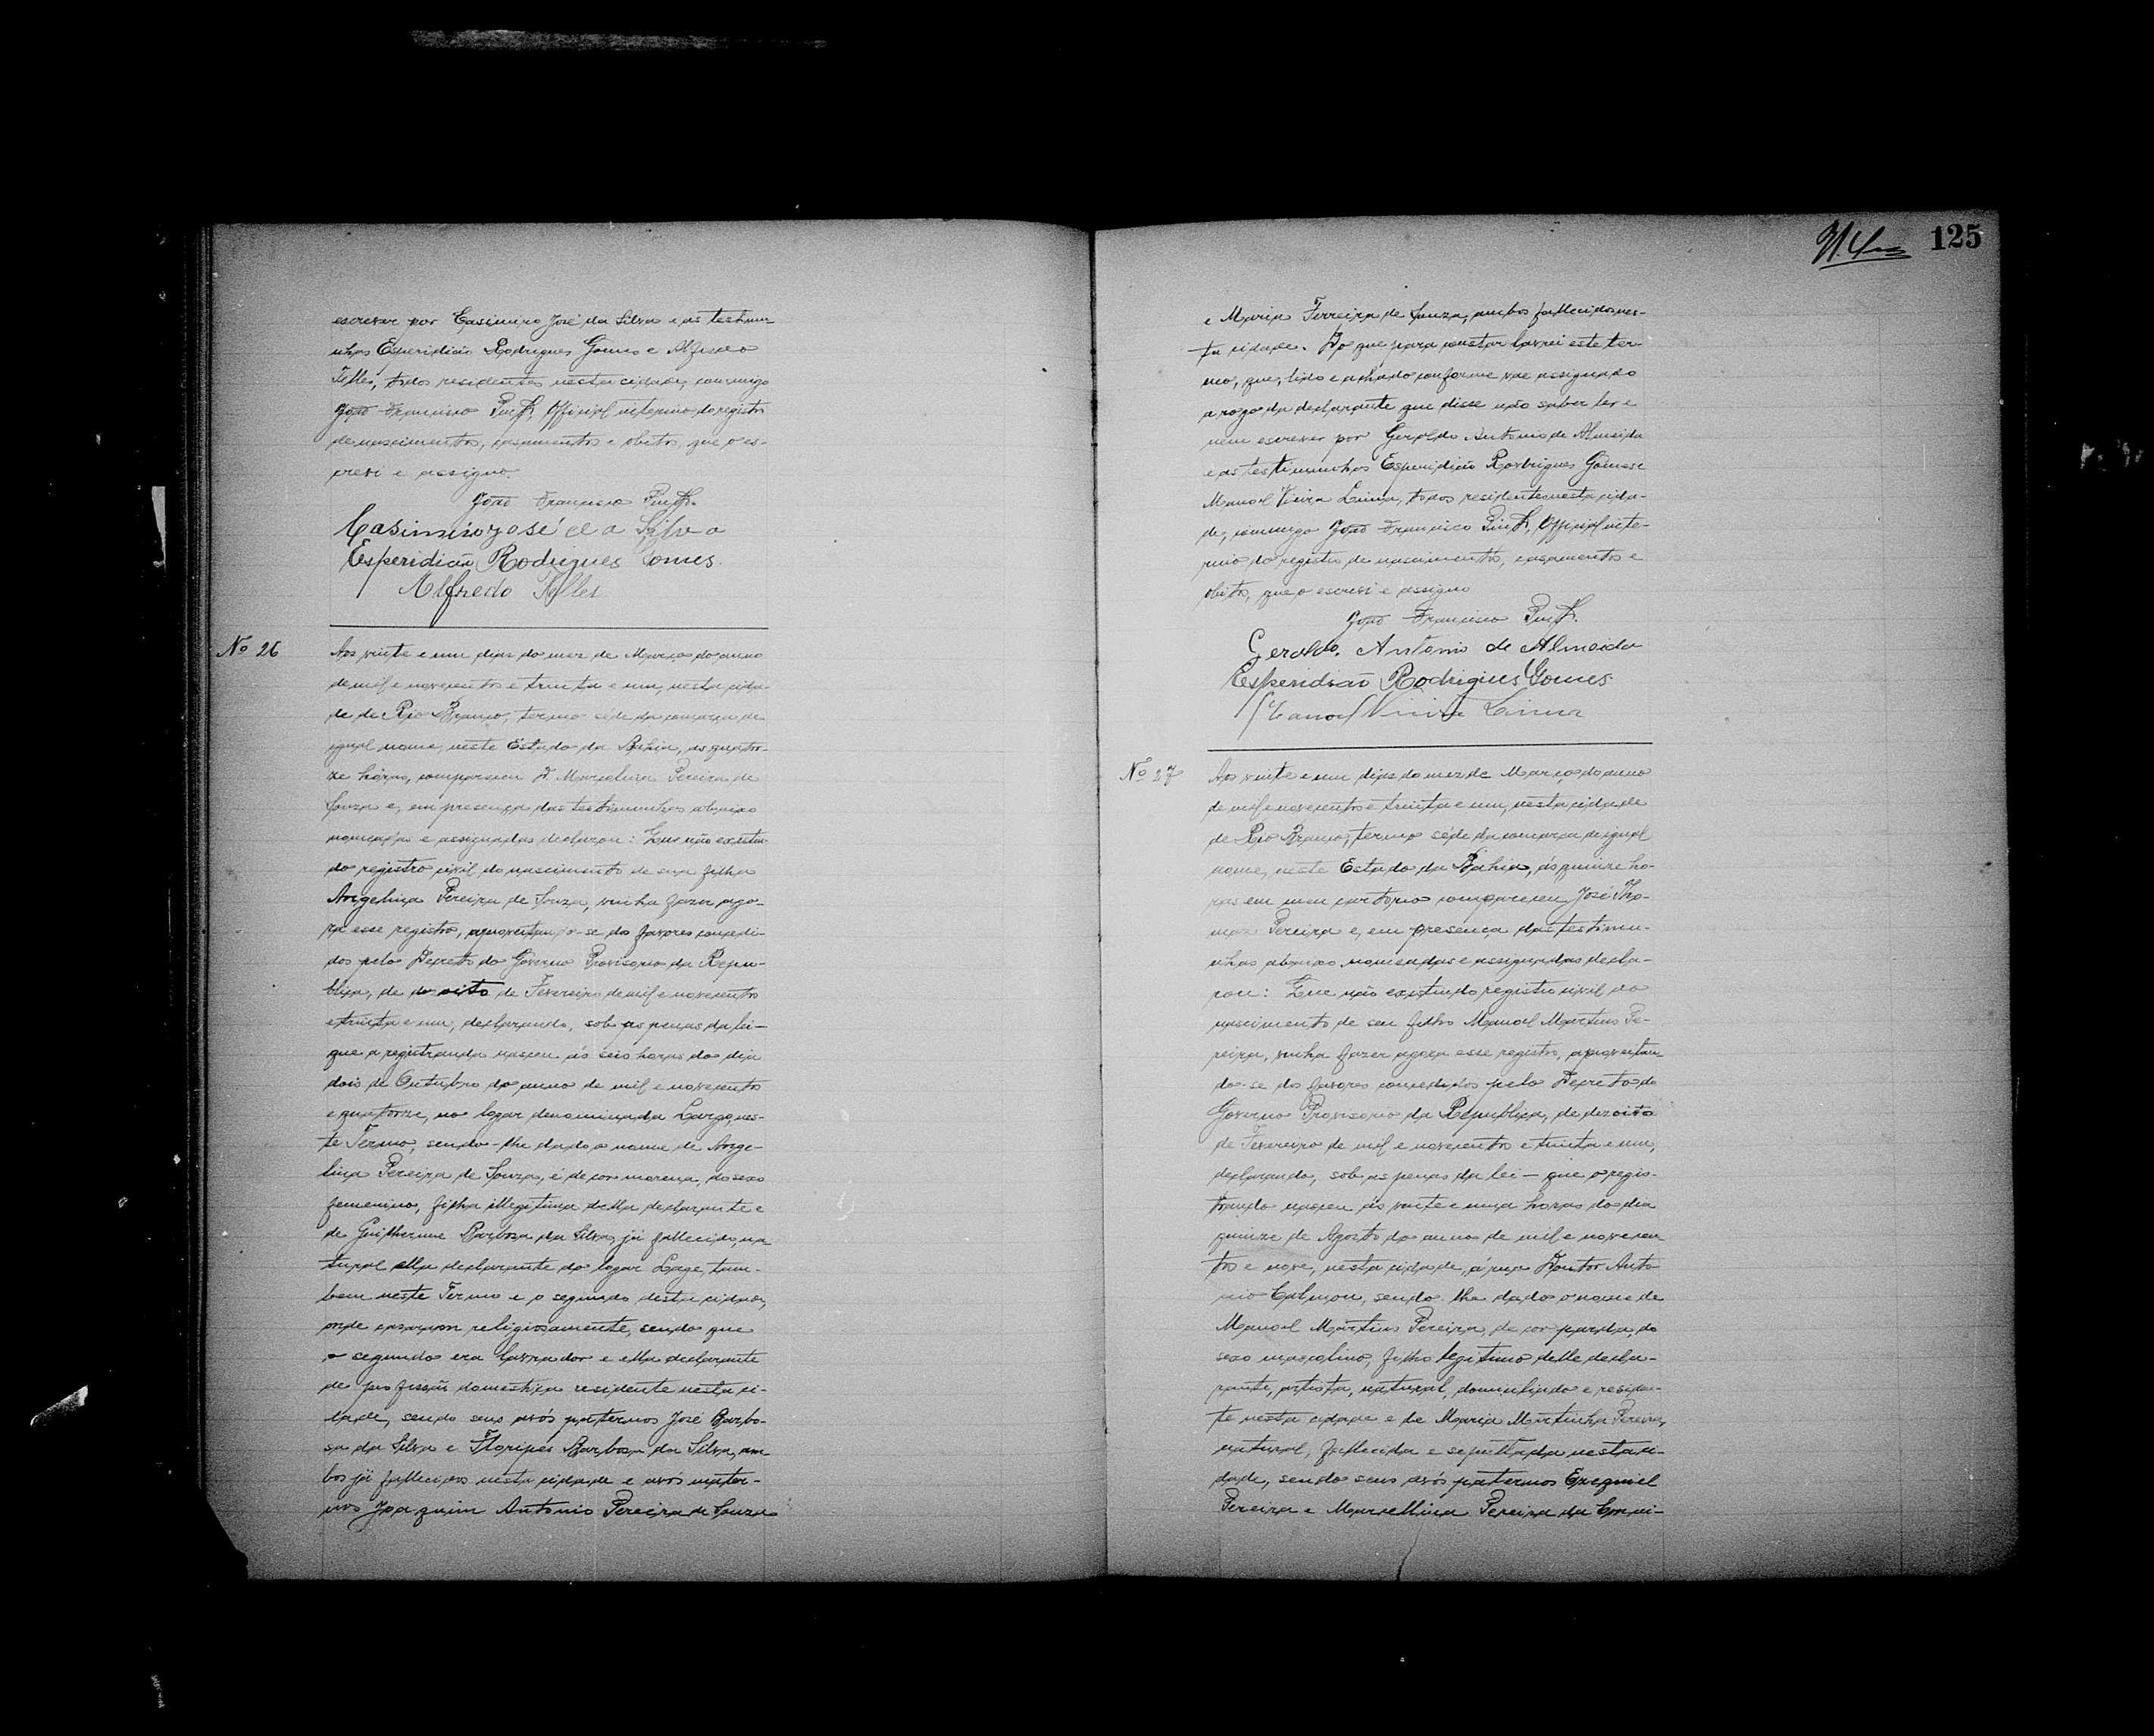 escrever por Casimiro José da Silva e as testemu-
nhas Esperidião Rodrigues Gomes e Alfredo
Telles, todos residentes nesta cidade, commigo
João Francisco Official interino do registro
de nascimentos, casamentos e obitos, que o es-
crevi e assigno.
João Francisco
Casimiro José da Silva
Esperidião Rodrigues Gomes.
Alfredo Telles
Nº 26
Aos vinte e um dias do mez de Março do anno
de mil e novecentos e trinta e um, nesta cida-
de de Rio Branco, termo séde da comarca de
igual nome, neste Estado da Bahia, as quator-
ze hóras, compareceu D. Marcolina Pereira de
Souza e, em presença das testimunhas abaixo
nomeadas e assignadas declarou: Que não existin-
do registro civil do nascimento de sua filha
Angelina Pereira de Souza, vinha fazer ago-
ra esse registro, aproveitando-se dos favores concedi-
dos pelo Decreto do Governo Provisorio da Repu-
blica, de de oito de Fevereiro de mil e novecentos
e trinta e um, declarando, sob as penas da lei—
que a registranda nasceu ás seis horas do dia
dois de Outubro do anno de mil e novecentos
e quatorze, no logar denominada Largo, nes-
te Termo, sendo-lhe dado o nome de Ange-
lina Pereira de Souza, é de cor morena, do sexo
femenino, filha illegitima della declarante e
de Guilherme Barbosa da Silva, já fallecido, na-
tural ella declarante do logar Lage, tam-
bem neste Termo e o segundo desta cidade,
onde casaram religiosamente, sendo que
o segundo era lavrador e ella declarante
de profissão domestica residente nesta ci-
dade, sendo seus avós paternos José Barbo-
sa da Silva e Floripes Barbosa da Silva, am-
bos já fallecidos nesta cidade e avós mater-
nos Joaquim Antonio Pereira de Souza
125
e Maria Ferreira de Souza, ambos fallecidos nes-
ta cidade. Do que para constar lavrei este ter-
mo, que, lido e achado conforme vae assignado
a rogo da declarante que disse não saber ler e
nem escrever por Geraldo Antonio de Almeida
e as testimunhas Esperidião Rodrigues Gomes e
Manoel Vieira Lima, todos residentes nesta cida-
de, commigo João Francisco Official inte-
rino do registro de nascimentos, casamentos e
obitos, que o escrevi e assigno
João Francisco
Geraldo Antonio de Almeida
Esperidião Rodrigues Gomes
Manoel Vieira Lima
Nº 27
Aos vinte e um dias do mez de Março do anno
de mil e novecentos e trinta e um, nesta cidade
de Rio Branco, termo séde da comarca de igual
nome, neste Estado da Bahia, ás quinze ho-
ras em meu cartorio compareceu José Tho-
maz Pereira e, em presença das testimu-
nhas abaixo nomeadas e assignadas decla-
rou: Que não existindo registro civil do
nascimento de seu filho Manoel Martins Pe-
reira, vinha fazer agora esse registro, aproveitan-
do-se dos favores concedidos pelo Decreto do
Governo Provisorio da Republica, de dezoito
de Fevereiro de mil e novecentos e trinta e um,
declarando, sob as penas da lei— que o regis-
trando nasceu ás vinte e uma horas do dia
quinze de Agosto do anno de mil e novecen-
tos e nove, nesta cidade, á rua Doutor Anto-
nio Calmon, sendo-lhe dado o nome de
Manoel Martins Pereira, de cor parda, do
sexo masculino, filho legitimo delle decla-
rante, artista, natural, domiciliado e residen-
te nesta cidade e de Maria Martinha Pereira,
natural, fallecida e sepultada nesta ci-
dade, sendo seus avós paternos Ezequiel
Pereira e Marcellina Pereira da Concei-